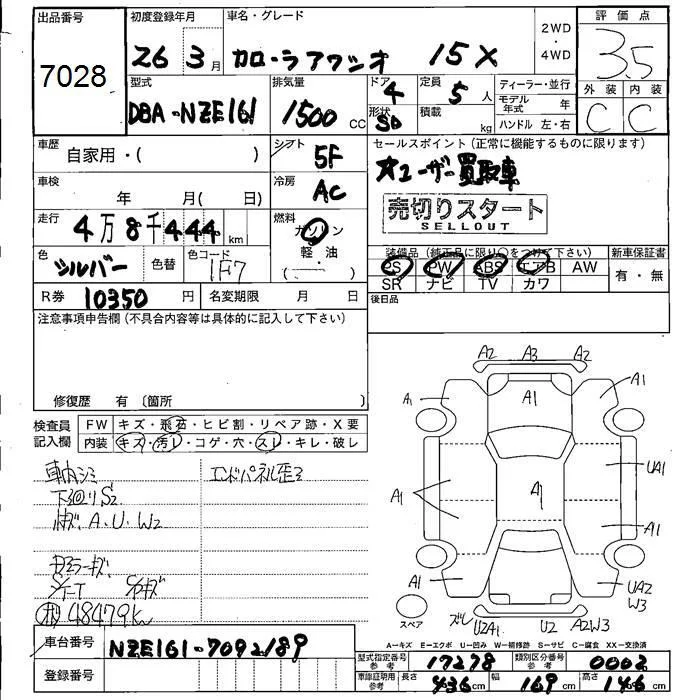 出品番号 初度登録年月 車名・グレード 評価点
7028 26 3月 カローラアクシオ 15X 2WD 4WD 3.5
型式 排気量 ドア 定員 ディーラー・並行 外装 内装
DBA-NZE161 1500CC 4 5人 モデル年式 年 C C
形状 SD 積載 kg ハンドル 左・右
車歴 自家用・( ) シフト 5F セールスポイント(正常に機能するものに限ります)
車検 年 月( 日) 冷房 AC ★ユーザー買取車
売切りスタート
SELLOUT
走行 4万8千444km 燃料 ガソリン 軽・油 ( )
色 シルバー 色替 色コード 1F7
装備品(純正品に限り○をつけて下さい) 新車保証書
PS PW ABS エアB AW 有・無
SR ナビ TV カワ
R券 10350円 名変期限 月 日 後日品
注意事項申告欄(不具合内容等は具体的に記入して下さい)
修復歴 有 〔箇所 〕
検査員記入欄 FW キズ・飛石・ヒビ割・リペア跡・X要
内装 キズ・汚レ・コゲ・穴・スレ・キレ・破レ
車内シミ エンドパネル歪ミ
下廻りS2
A.U.W2
48479k
A2 A3 A2
A1 A1 A1
UA1
A1 A1 A1
A1 UA2
W3
スペア ズレ U2A1 U2 A2W3
A=キズ E=エクボ U=凹み W=補修跡 S=サビ C=腐食 XX=交換済
車台番号 NZE161-7092189
登録番号
型式指定番号 参考 17278 類別区分番号 参考 0002
車庫証明用 参考 長さ 436cm 幅 169cm 高さ 146cm